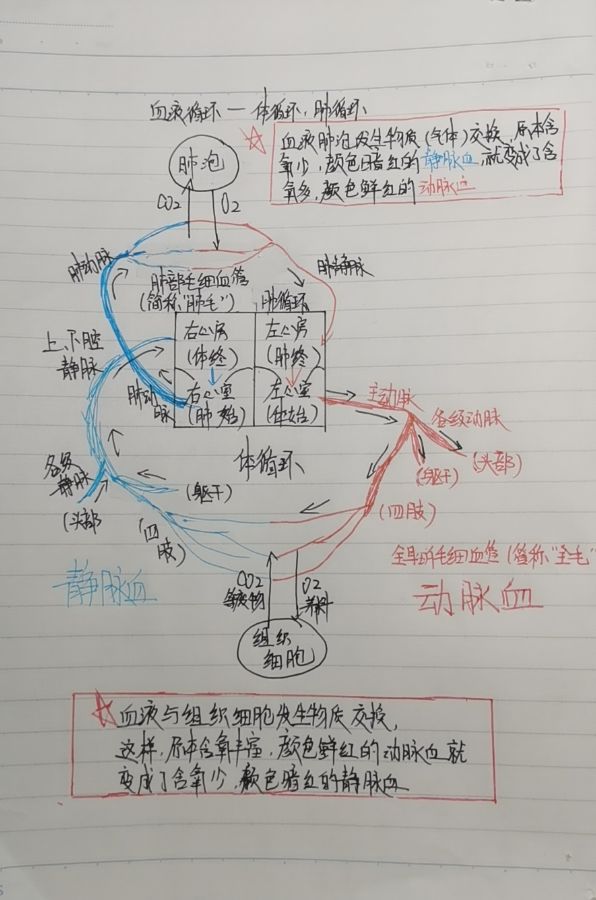 血液循环 — 体循环,肺循环
肺泡
血液肺泡发生物质(气体)交换,原本含
氧少,颜色暗红的静脉血,就变成了含
氧多,颜色鲜红的动脉血
CO2
O2
肺动脉
肺静脉
肺部毛细血管
(简称"肺毛")
肺循环
右心房
(体终)
左心房
(肺终)
上、下腔
静脉
肺动
脉
右心室
(肺始)
左心室
(体始)
主动脉
各级动脉
体循环
各级
静脉
(头部
(躯干)
(四
肢)
(躯干)
(头部)
(四肢)
全身毛细血管(简称"全毛"
静脉血
动脉血
CO2
等废物
O2
养料
组织
细胞
血液与组织细胞发生物质交换,
这样,原本含氧丰富,颜色鲜红的动脉血就
变成了含氧少,颜色暗红的静脉血